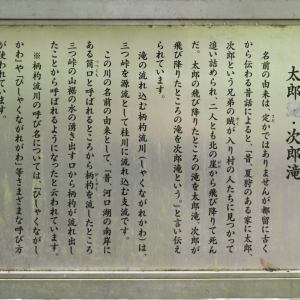 太郎 次郎滝
名前の由来は、定かではありませんが都留に古く
から伝わる昔話によると、「昔、夏狩のある家に太郎
次郎という兄弟の賊が入り村の人たちに見つかって
追い詰められ、二人とも北の崖から飛び降りて死ん
だ。太郎の飛び降りたところの滝を太郎滝、次郎が
飛び降りたところの滝を次郎滝という。」と言い伝え
られています。
滝の流れ込む柄杓流川(しゃくながれかわ)は、
三つ峠を源流として桂川に流れ込む支流です。
この川の名前の由来として、「昔、河口湖の南岸に
ある筒口と呼ばれるところから柄杓を流したところ
三つ峠の山裾の水の湧き出す口から柄杓が流れ出し
たことから呼ばれるようになったと云われています。
※柄杓流川の呼び名については、「ひしゃくながし
かわ」や「ひしゃくながれがわ」等さまざまな呼び方
が使われています。